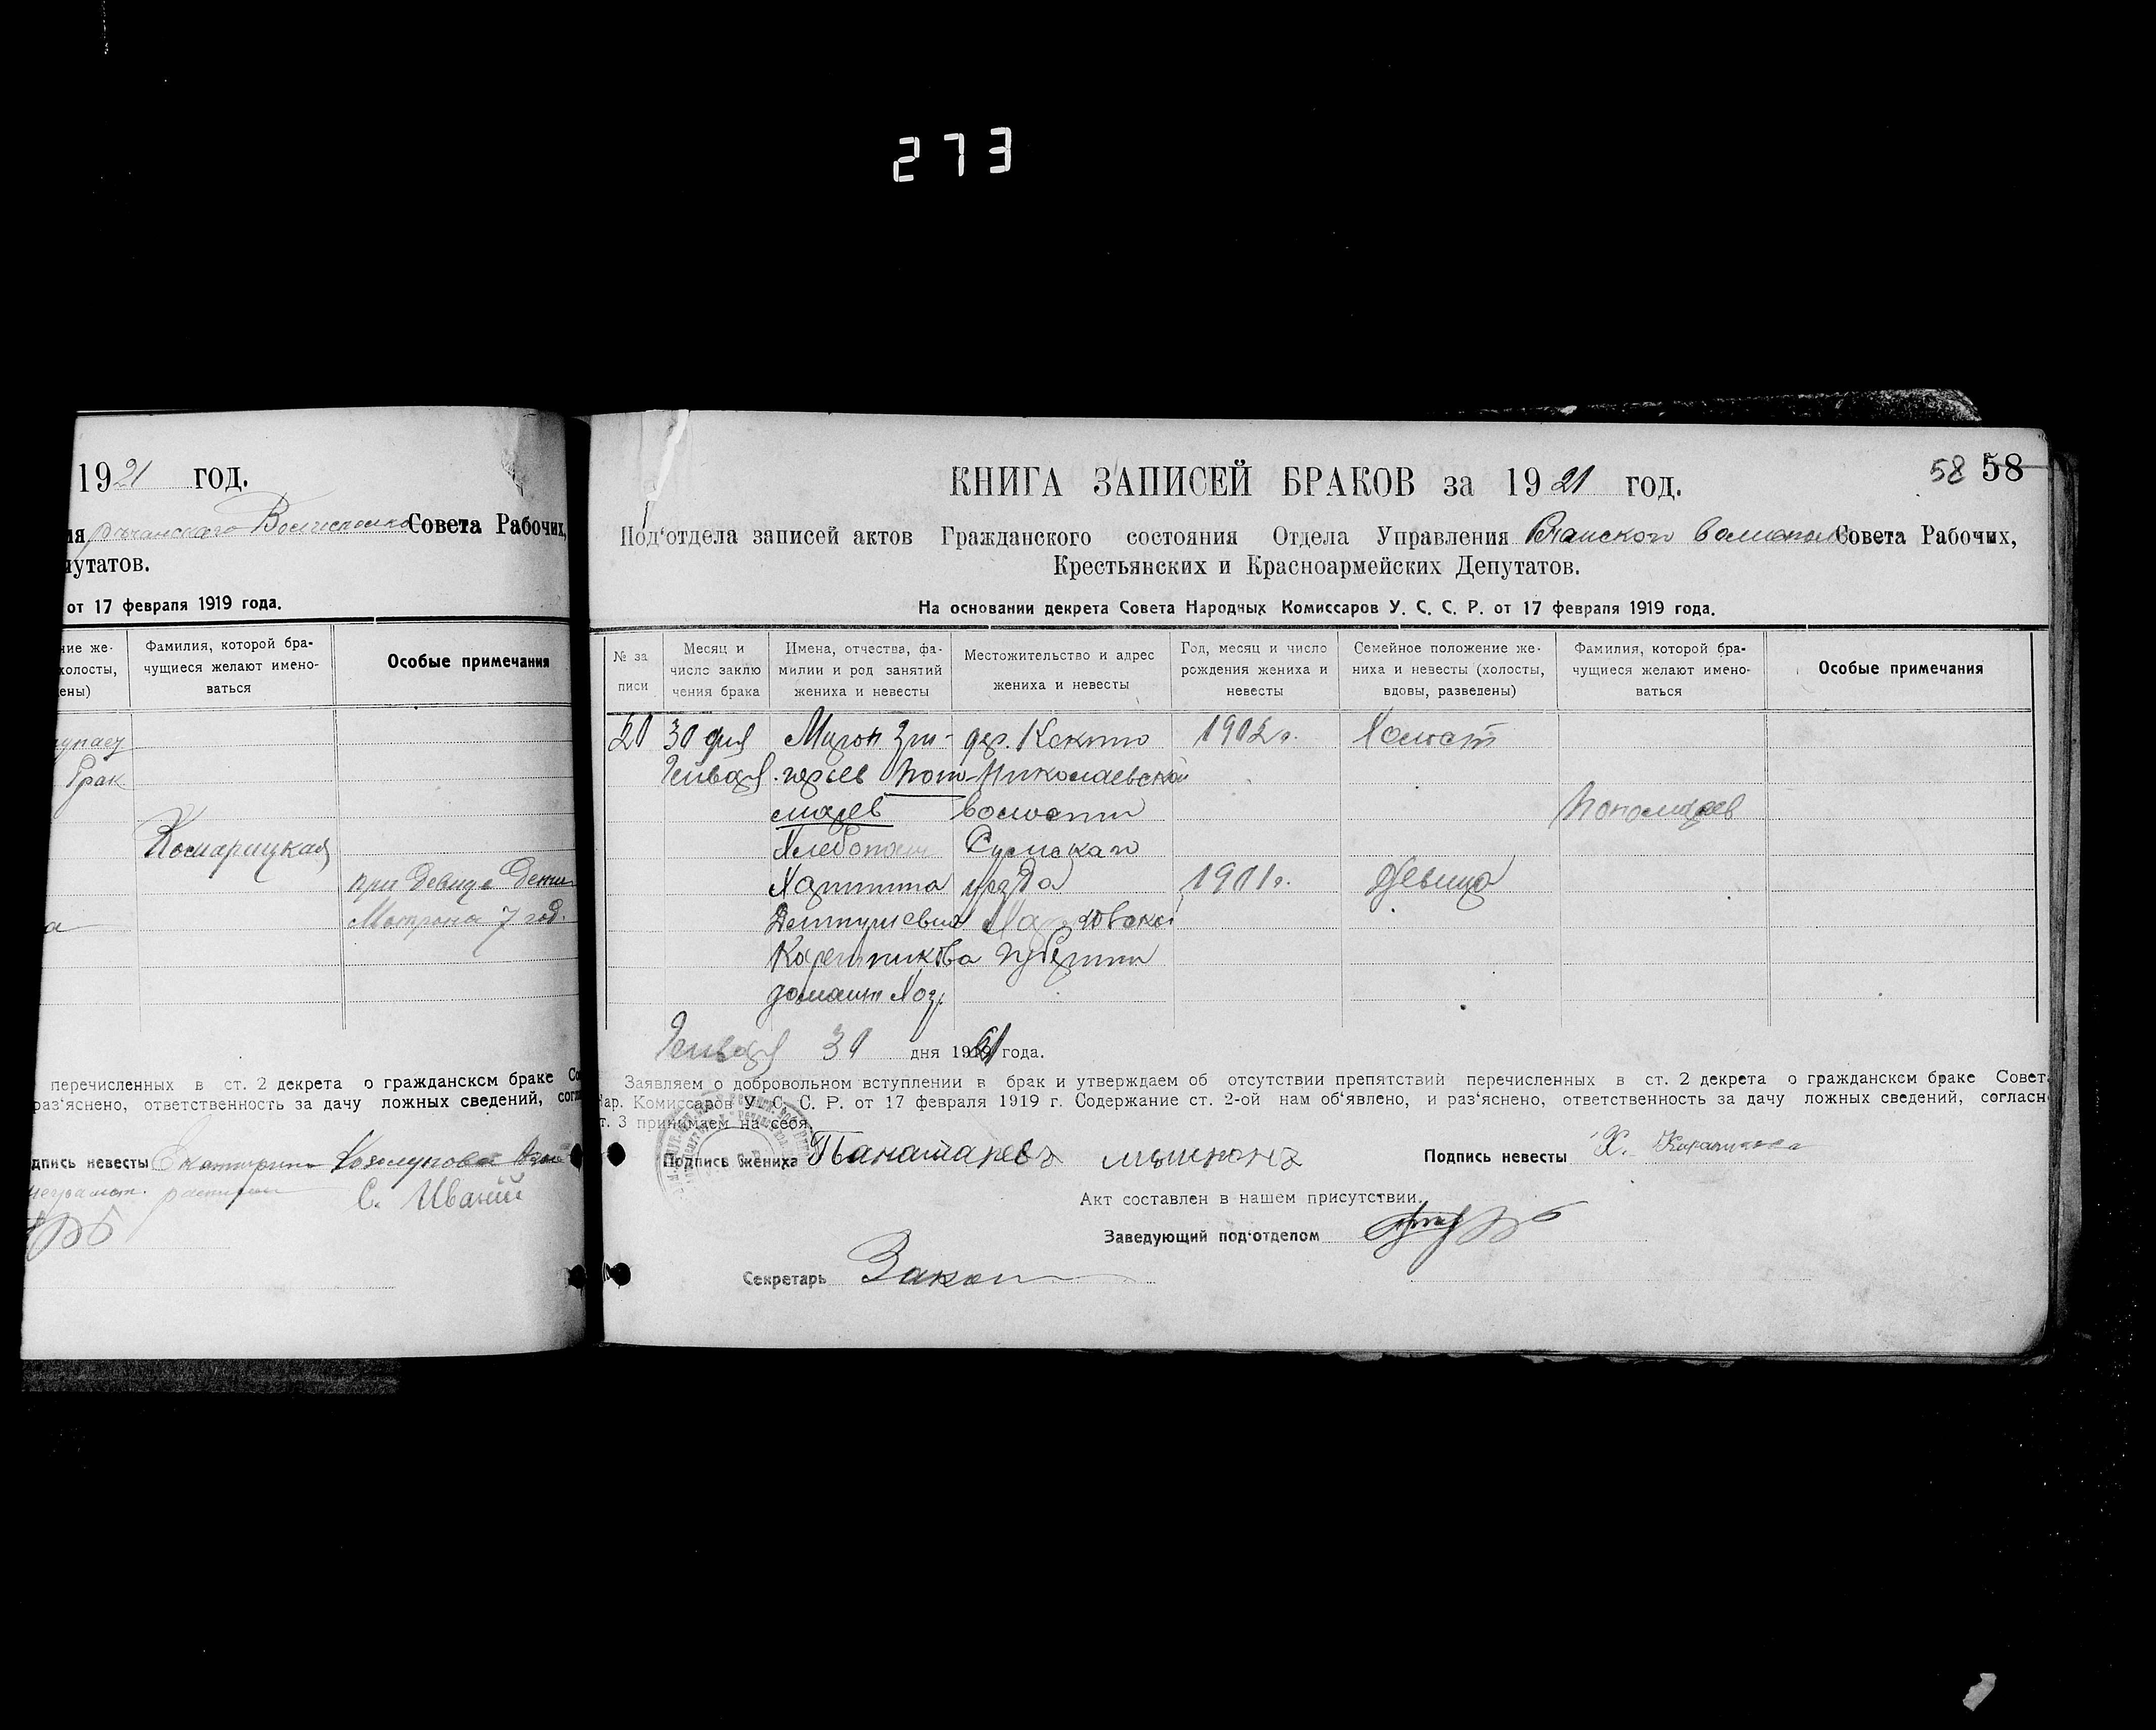 273
1921 год.
Совета Рабочих,
от 17 февраля 1919 года.
Фамилия, которой бра-
чущиеся желают имено-
ваться
Особые примечания
Брак
Комарицкая
при девице
Матрона 7 год.
перечисленных в ст. 2 декрета о гражданском браке
раз'яснено, ответственность за дачу ложных сведений,
невесты Екатерина
С. Иваній
58 58
КНИГА ЗАПИСЕЙ БРАКОВ за 1921 год.
Под'отдела записей актов Гражданского состояния Отдела Управления Совета Рабочих,
Крестьянских и Красноармейских Депутатов.
На основании декрета Совета Народных Комиссаров У. С. С. Р. от 17 февраля 1919 года.
№ за
писи
Месяц и
число заклю
чения брака
Имена, отчества, фа-
милии и род занятий
жениха и невесты
Местожительство и адрес
жениха и невесты
Год, месяц и число
рождения жениха и
невесты
Семейное положение же-
ниха и невесты (холосты,
вдовы, разведены)
Фамилия, которой бра-
чущиеся желают имено-
ваться
Особые примечания
20 30 дня Мирон Гри- дер. 1902 г. Холост
Января горьев Поно- Николаевской
марев волости Пономарев
Хлебопаш Сумского
Харитина уезда 1901 г. Девица
Харьковской
Коретникова губернии
домашн хоз.
Января 30 дня 1921 года.
Заявляем о добровольном вступлении в брак и утверждаем об отсутствии препятствий перечисленных в ст. 2 декрета о гражданском браке Совета
Нар. Комиссаров У. С. С. Р. от 17 февраля 1919 г. Содержание ст. 2-ой нам об'явлено, и раз'яснено, ответственность за дачу ложных сведений, согласно
ст. 3 принимаем на себя.
Подпись жениха Панамаревъ Подпись невесты Х.
Акт составлен в нашем присутствии.
Заведующий под'отделом
Секретарь